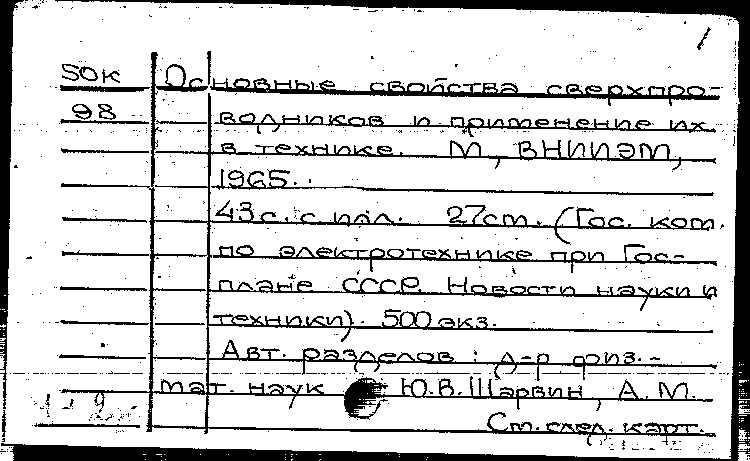 1
50к Основные свойства сверхпро-
98 водников и применение их
в технике. М, ВНИИЭМ,
1965.
43 с. с илл. 27 см. (Гос. ком.
по электротехнике при Гос-
плане СССР. Новости науки и
техники) 500 экз.
Авт. разделов: д-р физ.-
мат. наук Ю.В. Шарвин, А.М.
См. след. карт.